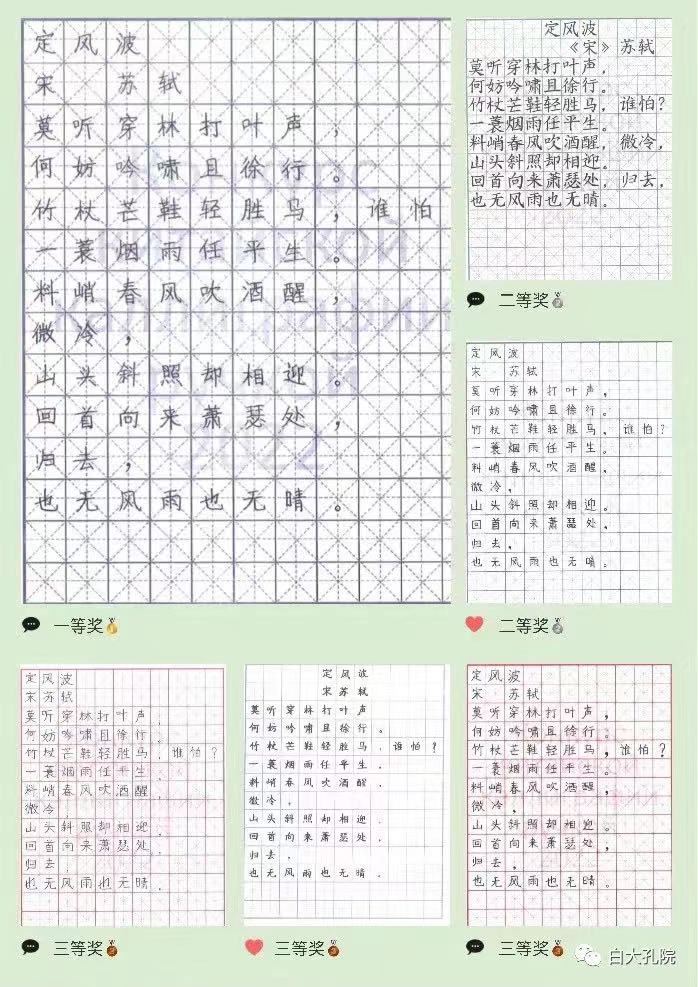 定风波
宋 苏轼
莫听穿林打叶声，
何妨吟啸且徐行。
竹杖芒鞋轻胜马，谁怕
一蓑烟雨任平生。
料峭春风吹酒醒，
微冷，
山头斜照却相迎。
回首向来萧瑟处，
归去，
也无风雨也无晴。
一等奖
定风波
《宋》苏轼
莫听穿林打叶声，
何妨吟啸且徐行。
竹杖芒鞋轻胜马，谁怕？
一蓑烟雨任平生。
料峭春风吹酒醒，微冷，
山头斜照却相迎。
回首向来萧瑟处，归去，
也无风雨也无晴。
二等奖
定风波
宋 苏轼
莫听穿林打叶声，
何妨吟啸且徐行。
竹杖芒鞋轻胜马，谁怕？
一蓑烟雨任平生。
料峭春风吹酒醒，
微冷，
山头斜照却相迎。
回首向来萧瑟处，
归去，
也无风雨也无晴。
二等奖
定风波
宋苏轼
莫听穿林打叶声，
何妨吟啸且徐行。
竹杖芒鞋轻胜马，谁怕？
一蓑烟雨任平生.
料峭春风吹酒醒，
微冷
山头斜照却相迎.
回首向来萧瑟处.
归去.
也无风雨也无晴.
三等奖
定风波
宋苏轼
莫听穿林打叶声
何妨吟啸且徐行。
竹杖芒鞋轻胜马，谁怕？
一蓑烟雨任平生.
料峭春风吹酒醒.
微冷，
山头斜照却相迎.
回首向来萧瑟处.
归去，
也无风雨也无晴.
三等奖
定风波
宋 苏轼
莫听穿林打叶声，
何妨吟啸且徐行。
竹杖芒鞋轻胜马，谁怕？
一蓑烟雨任平生。
料峭春风吹酒醒，
微冷，
山头斜照却相迎。
回首向来萧瑟处，
归去，
也无风雨也无晴。
三等奖
白大孔院